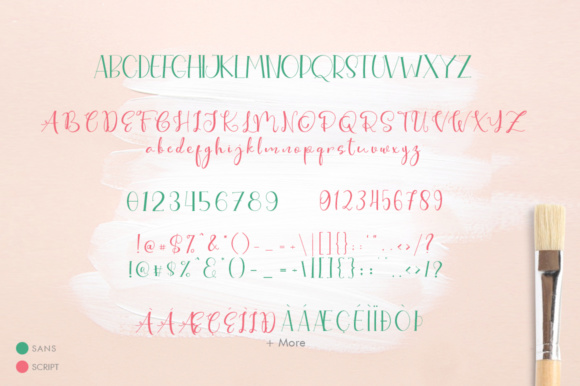 ABCDEFGHIJKLMNOPQRSTUVWXYZ
ABCDEFGHIJKLMNOPQRSTUVWXYZ
abcdefghijklmnopqrstuvwxyz
0123456789 0123456789
!@#$%^&*()-_=+\|[]{}:;'".,<>/?
!@#$%^&*()-_=+\|[]{}:;'".,<>/?
ÀÁÆÇÈÌÏÐ ÀÁÆÇÉÌÏÐÒÞ
+ More
SANS
SCRIPT